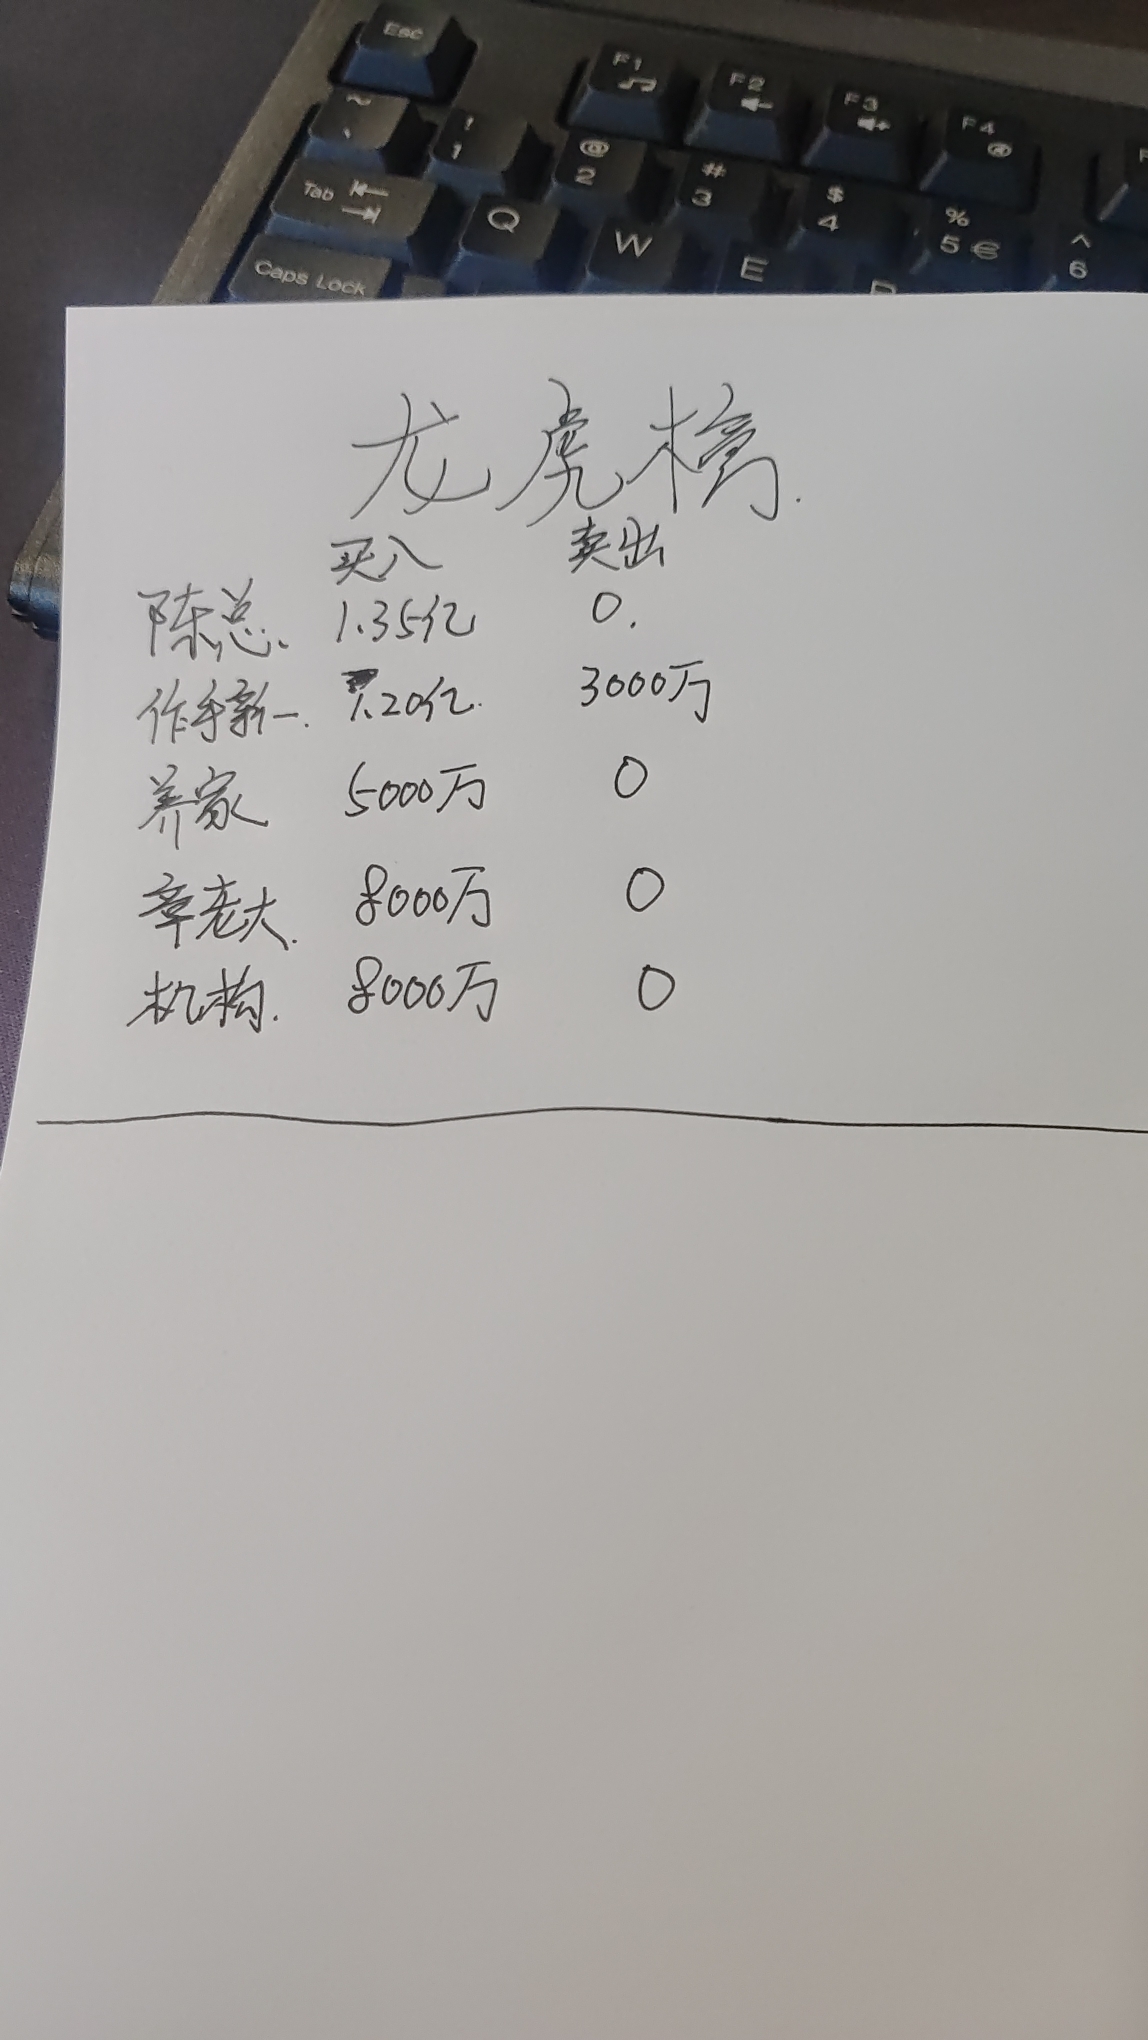 Esc
F1 F2 F3 F4
~ ! @ # $ % ^
` 1 2 3 4 5 € 6
Tab Q W E
Caps Lock
龙虎榜.
买入 卖出
陈总. 1.35亿 0.
作手新一. 1.20亿. 3000万
养家 5000万 0
章老大. 8000万 0
机构. 8000万 0